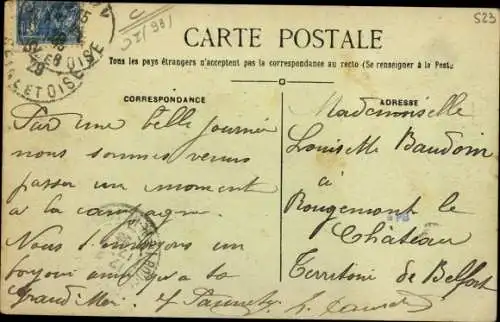 523
CARTE POSTALE
Tous les pays étrangers n'acceptent pas la correspondance au recto (Se renseigner à la Poste
CORRESPONDANCE
ADRESSE
ET OISE
Par une belle journée
nous sommes venus
passer un moment
a la campagne.
Nous t'envoyons un
ainsi qu'a ta
Grand Mère.
Mademoiselle
Louisette Baudoin
à
Rougemont le
Château
Territoire de Belfort